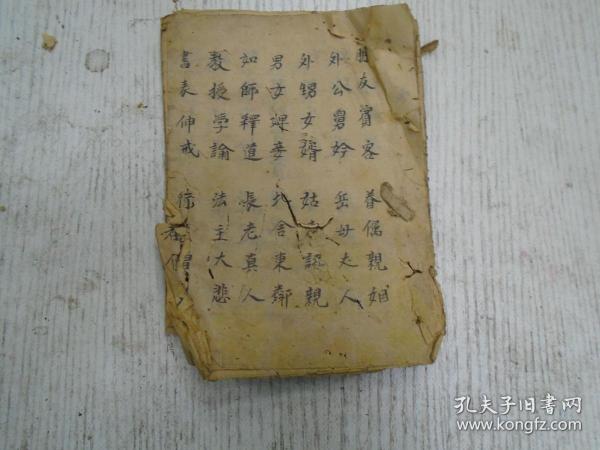 朋友賓客 眷侶親姻
外公舅妗 岳母夫人
外甥女婿 姑 認親
男女婢妾 北舍東鄰
如師釋道 長老真人
教授學論 法主大悲
書表伸戒
孔夫子旧书网
www.kongfz.com